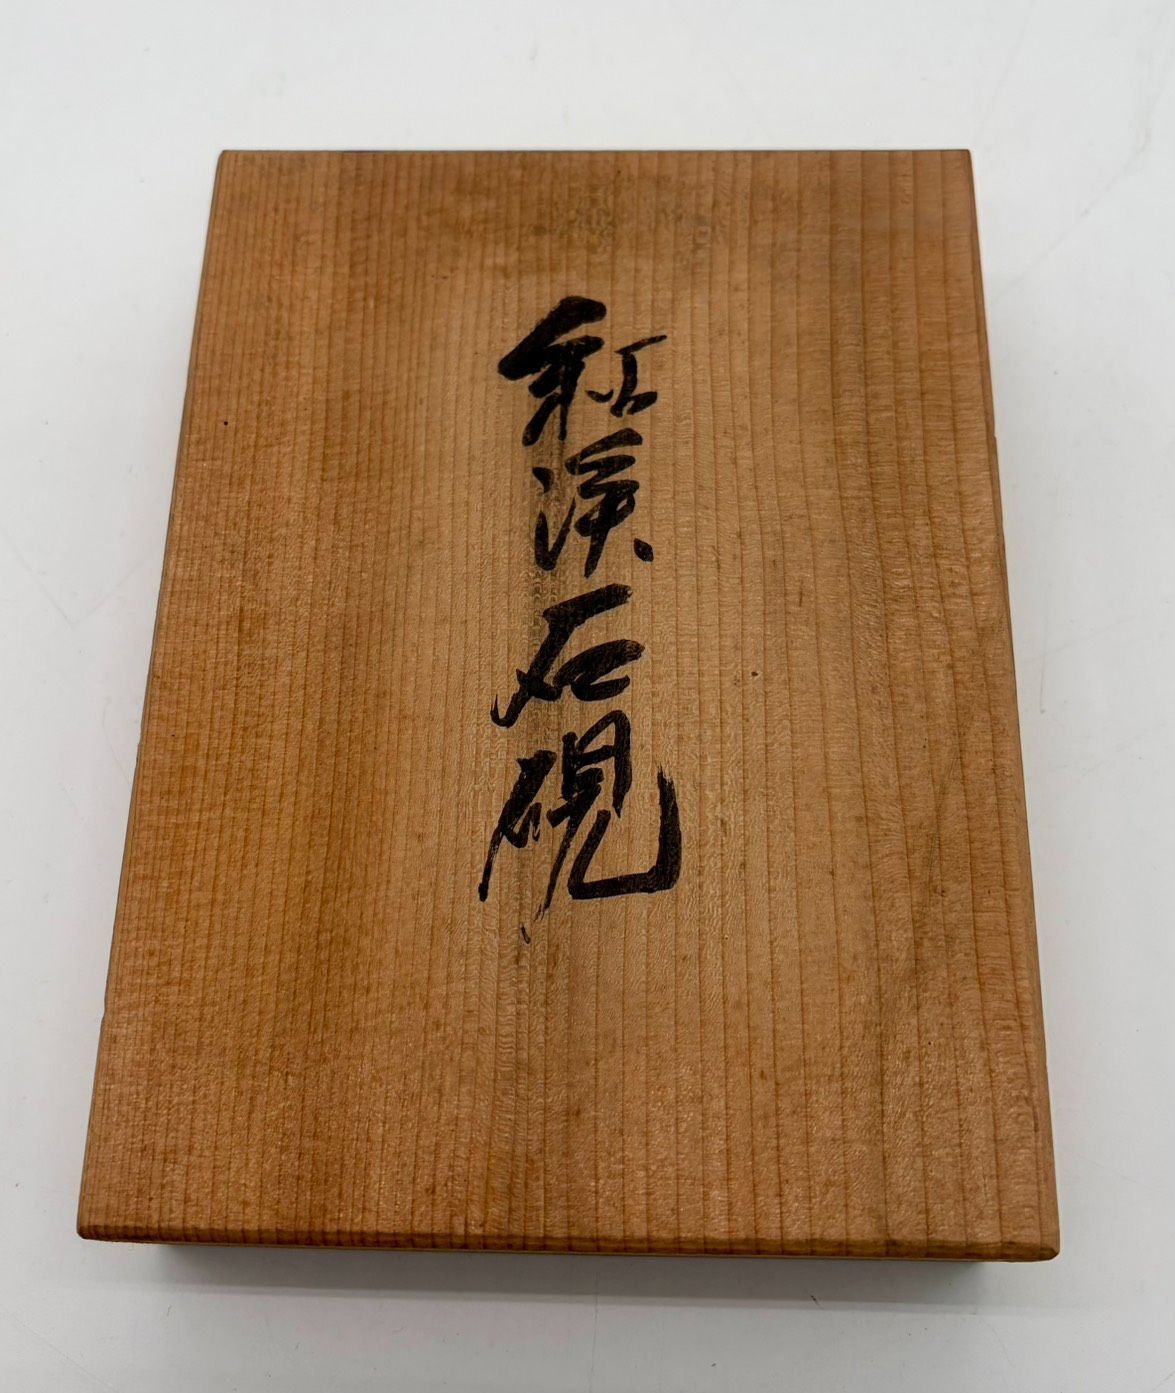 紅渓石硯